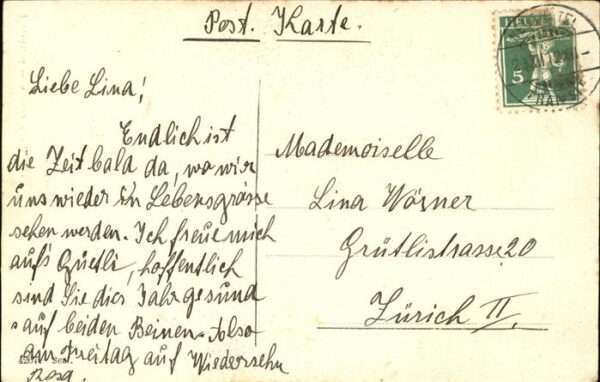 Post. Karte.
HELVETIA
5
Liebe Lina!
Endlich ist
die Zeit bald da, wo wir
uns wieder in Lebensgrösse
sehen werden. Ich freue mich
aufs Güetli, hoffentlich
sind Sie dies Jahr gesund
auf beiden Beinen. Also
am Freitag auf Wiedersehn
Rosa.
Mademoiselle
Lina Wörner
Grütlistrasse 20
Zürich II.